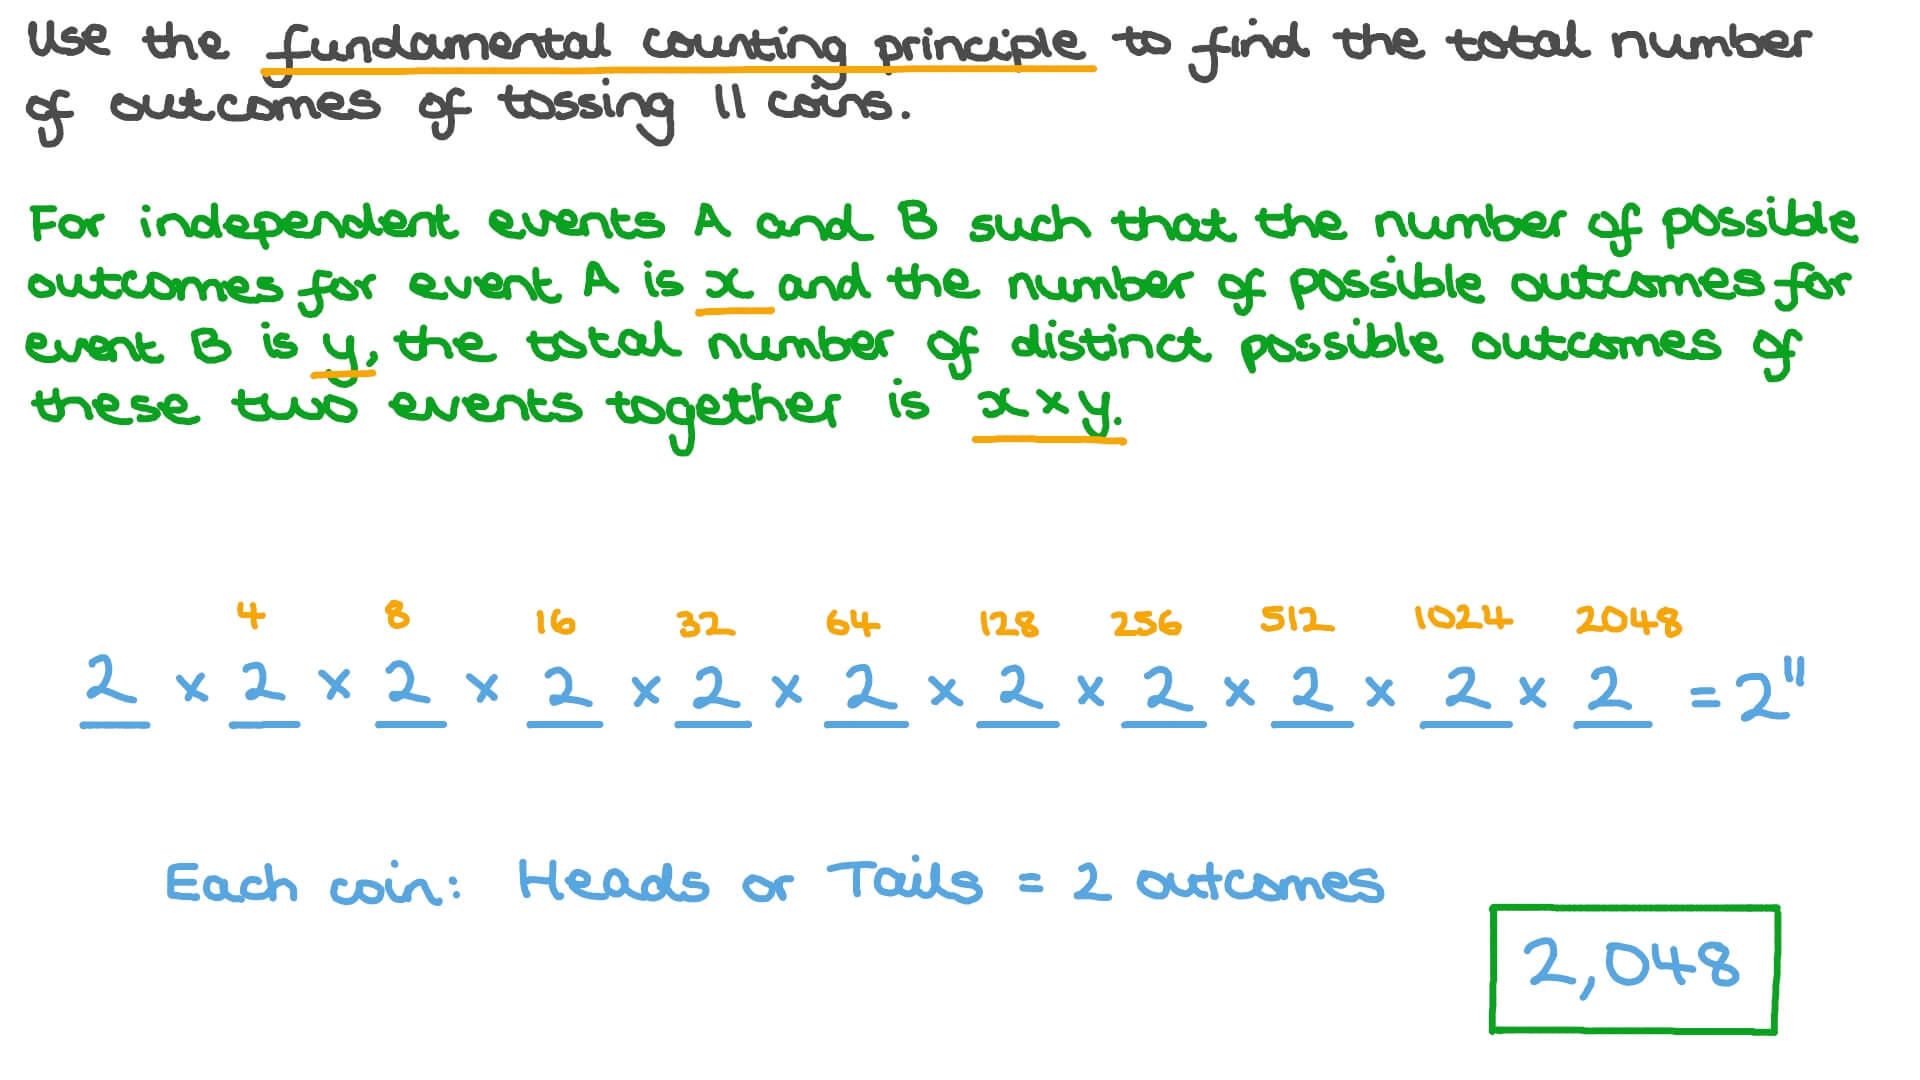 Use the fundamental counting principle to find the total number
of outcomes of tossing 11 coins.
For independent events A and B such that the number of possible
outcomes for event A is x and the number of possible outcomes for
event B is y, the total number of distinct possible outcomes of
these two events together is x × y.
4 8 16 32 64 128 256 512 1024 2048
2 × 2 × 2 × 2 × 2 × 2 × 2 × 2 × 2 × 2 × 2 = 2¹¹
Each coin: Heads or Tails = 2 outcomes
2,048